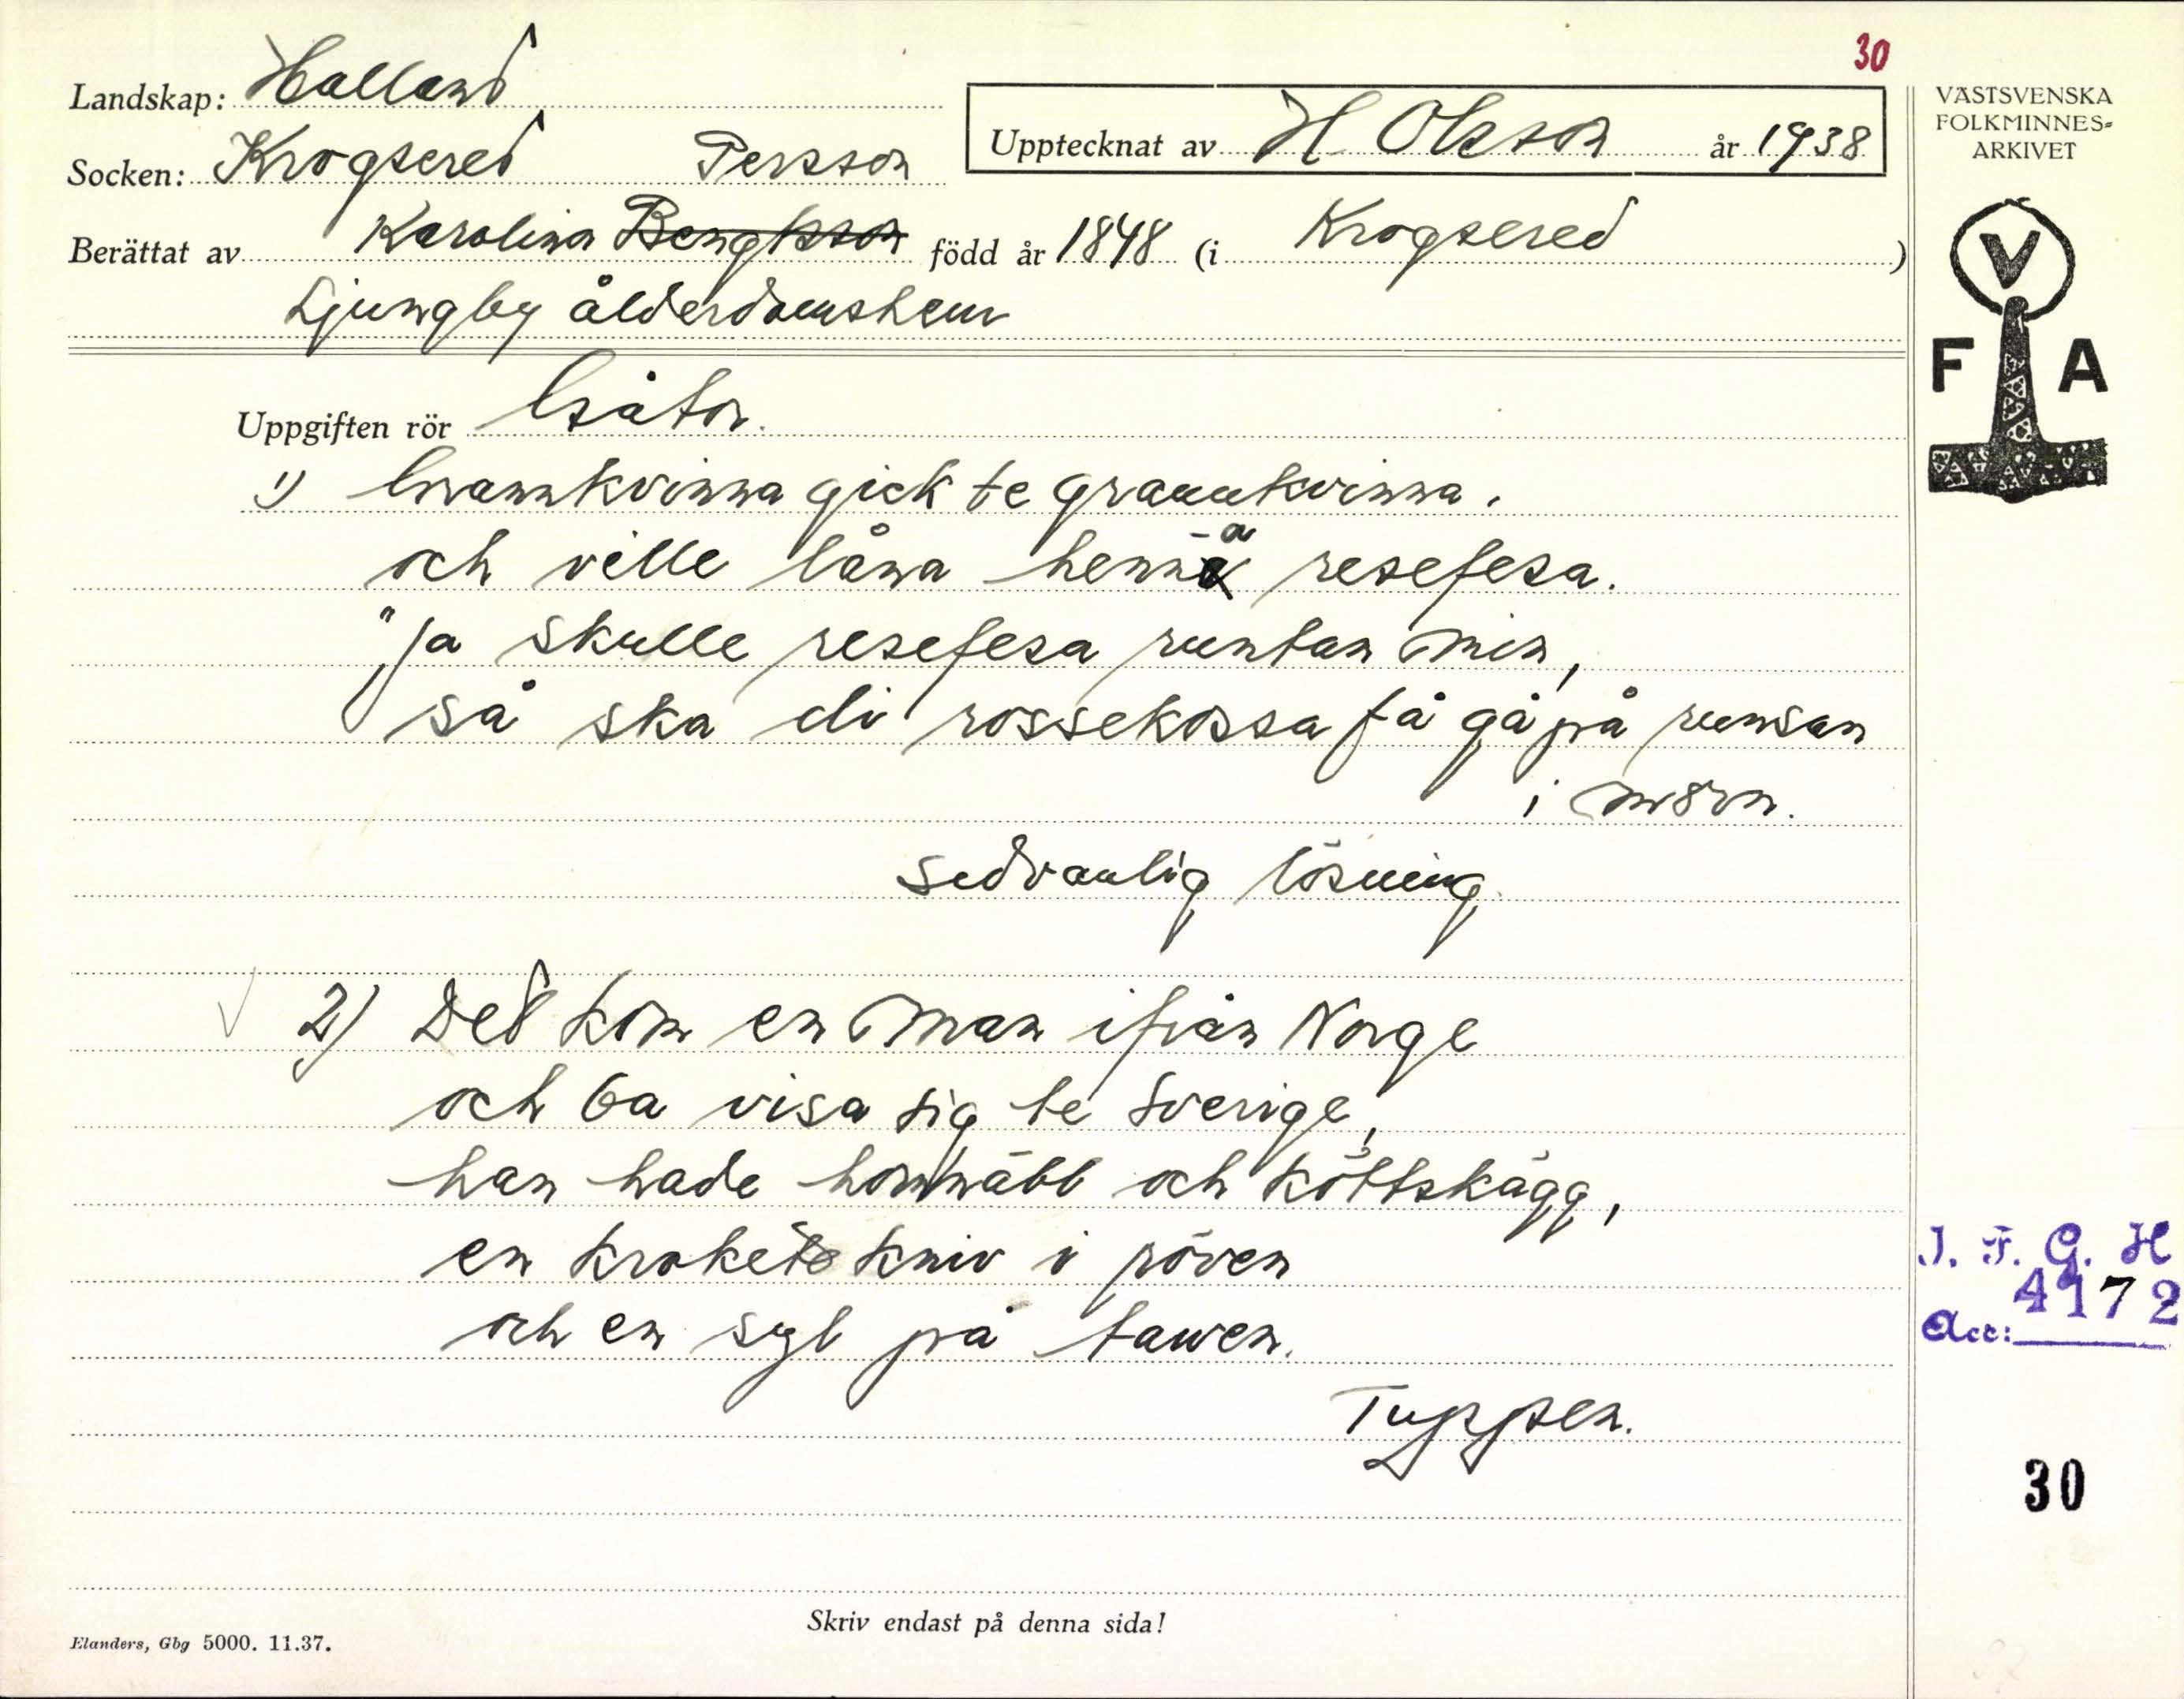 30
Landskap: Halland
Socken: Krogsered Persson
Upptecknat av H Olsson år 1938
Berättat av Karolina Bengtsson född år 1848 (i Krogsered)
Ljungby ålderdomshem
Uppgiften rör Gåtor.
1) Grannkvinna gick te grannkvinna.
och ville låna henna resefesa.
"Ja skulle resefesa runtan min,
så ska di rossekossa få gå på runsan
i morn.
Sedvanlig lösning.
2) Det kom en man ifrån Norge
och ba visa sig te Sverige,
han hade hornnäbb och köttskägg,
en kroket kniv i röven
och en syl på tawen.
Tuppen.
Skriv endast på denna sida!
Elanders, Gbg 5000. 11.37.
VÄSTSVENSKA
FOLKMINNES-
ARKIVET
V
F A
I. F. G. H
4172
Acc:
30